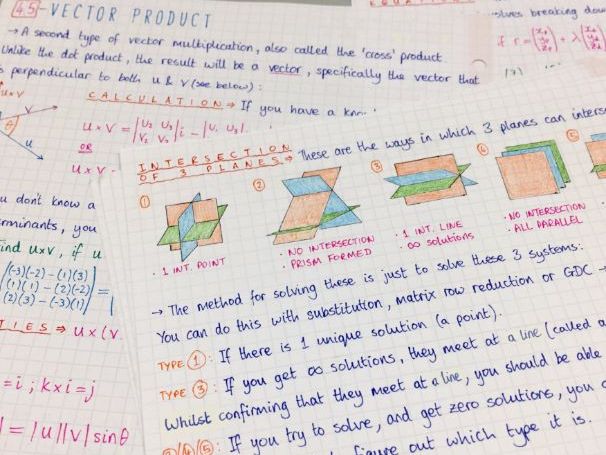 4.5 - VECTOR PRODUCT
→ A second type of vector multiplication, also called the 'cross' product
Unlike the dot product, the result will be a vector, specifically the vector that
perpendicular to both u & v (see below):
CALCULATION → If you have a
u×v = |U₂ U₃ V₂ V₃| i - |U₁ U₃|
OR
u×v
u don't know a
you
find u×v, if u
(-3)(-2) - (1)(3)
(1)(1) - (2)(-2)
(2)(3) - (-3)(1)
=
⇒ u×(v
= i ; k×i = j
| = |u||v| sinθ
v
u
if r =
+ λ
INTERSECTION OF 3 PLANES → These are the ways in which 3 planes can
① ② ③ ④ ⑤
· 1 INT. POINT
· NO INTERSECTION
· PRISM FORMED
· 1 INT. LINE
· ∞ solutions
· NO INTERSECTION
· ALL PARALLEL
→ The method for solving these is just to solve these 3 systems:
You can do this with substitution, matrix row reduction or GDC →
TYPE ①: If there is 1 unique solution (a point).
TYPE ③: If you get ∞ solutions, they meet at a line (called a
Whilst confirming that they meet at a line, you should be able
②/④/⑤: If you try to solve, and get zero solutions, you
figure out which type it is.